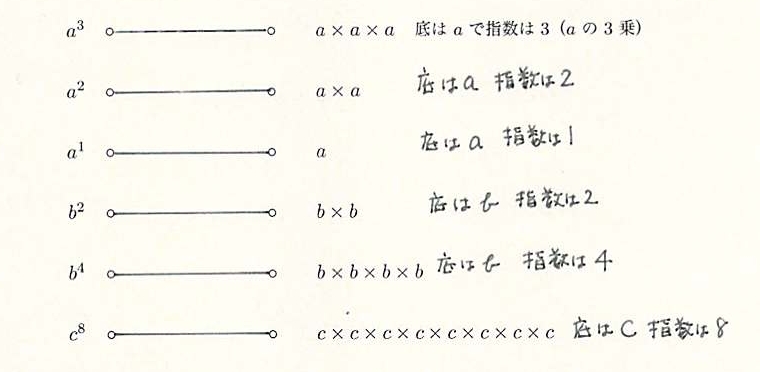 a³ a × a × a 底は a で指数は 3（a の 3 乗）
a² a × a 底は a 指数は2
a¹ a 底は a 指数は1
b² b × b 底は b 指数は2
b⁴ b × b × b × b 底は b 指数は 4
c⁸ c × c × c × c × c × c × c × c 底は C 指数は 8